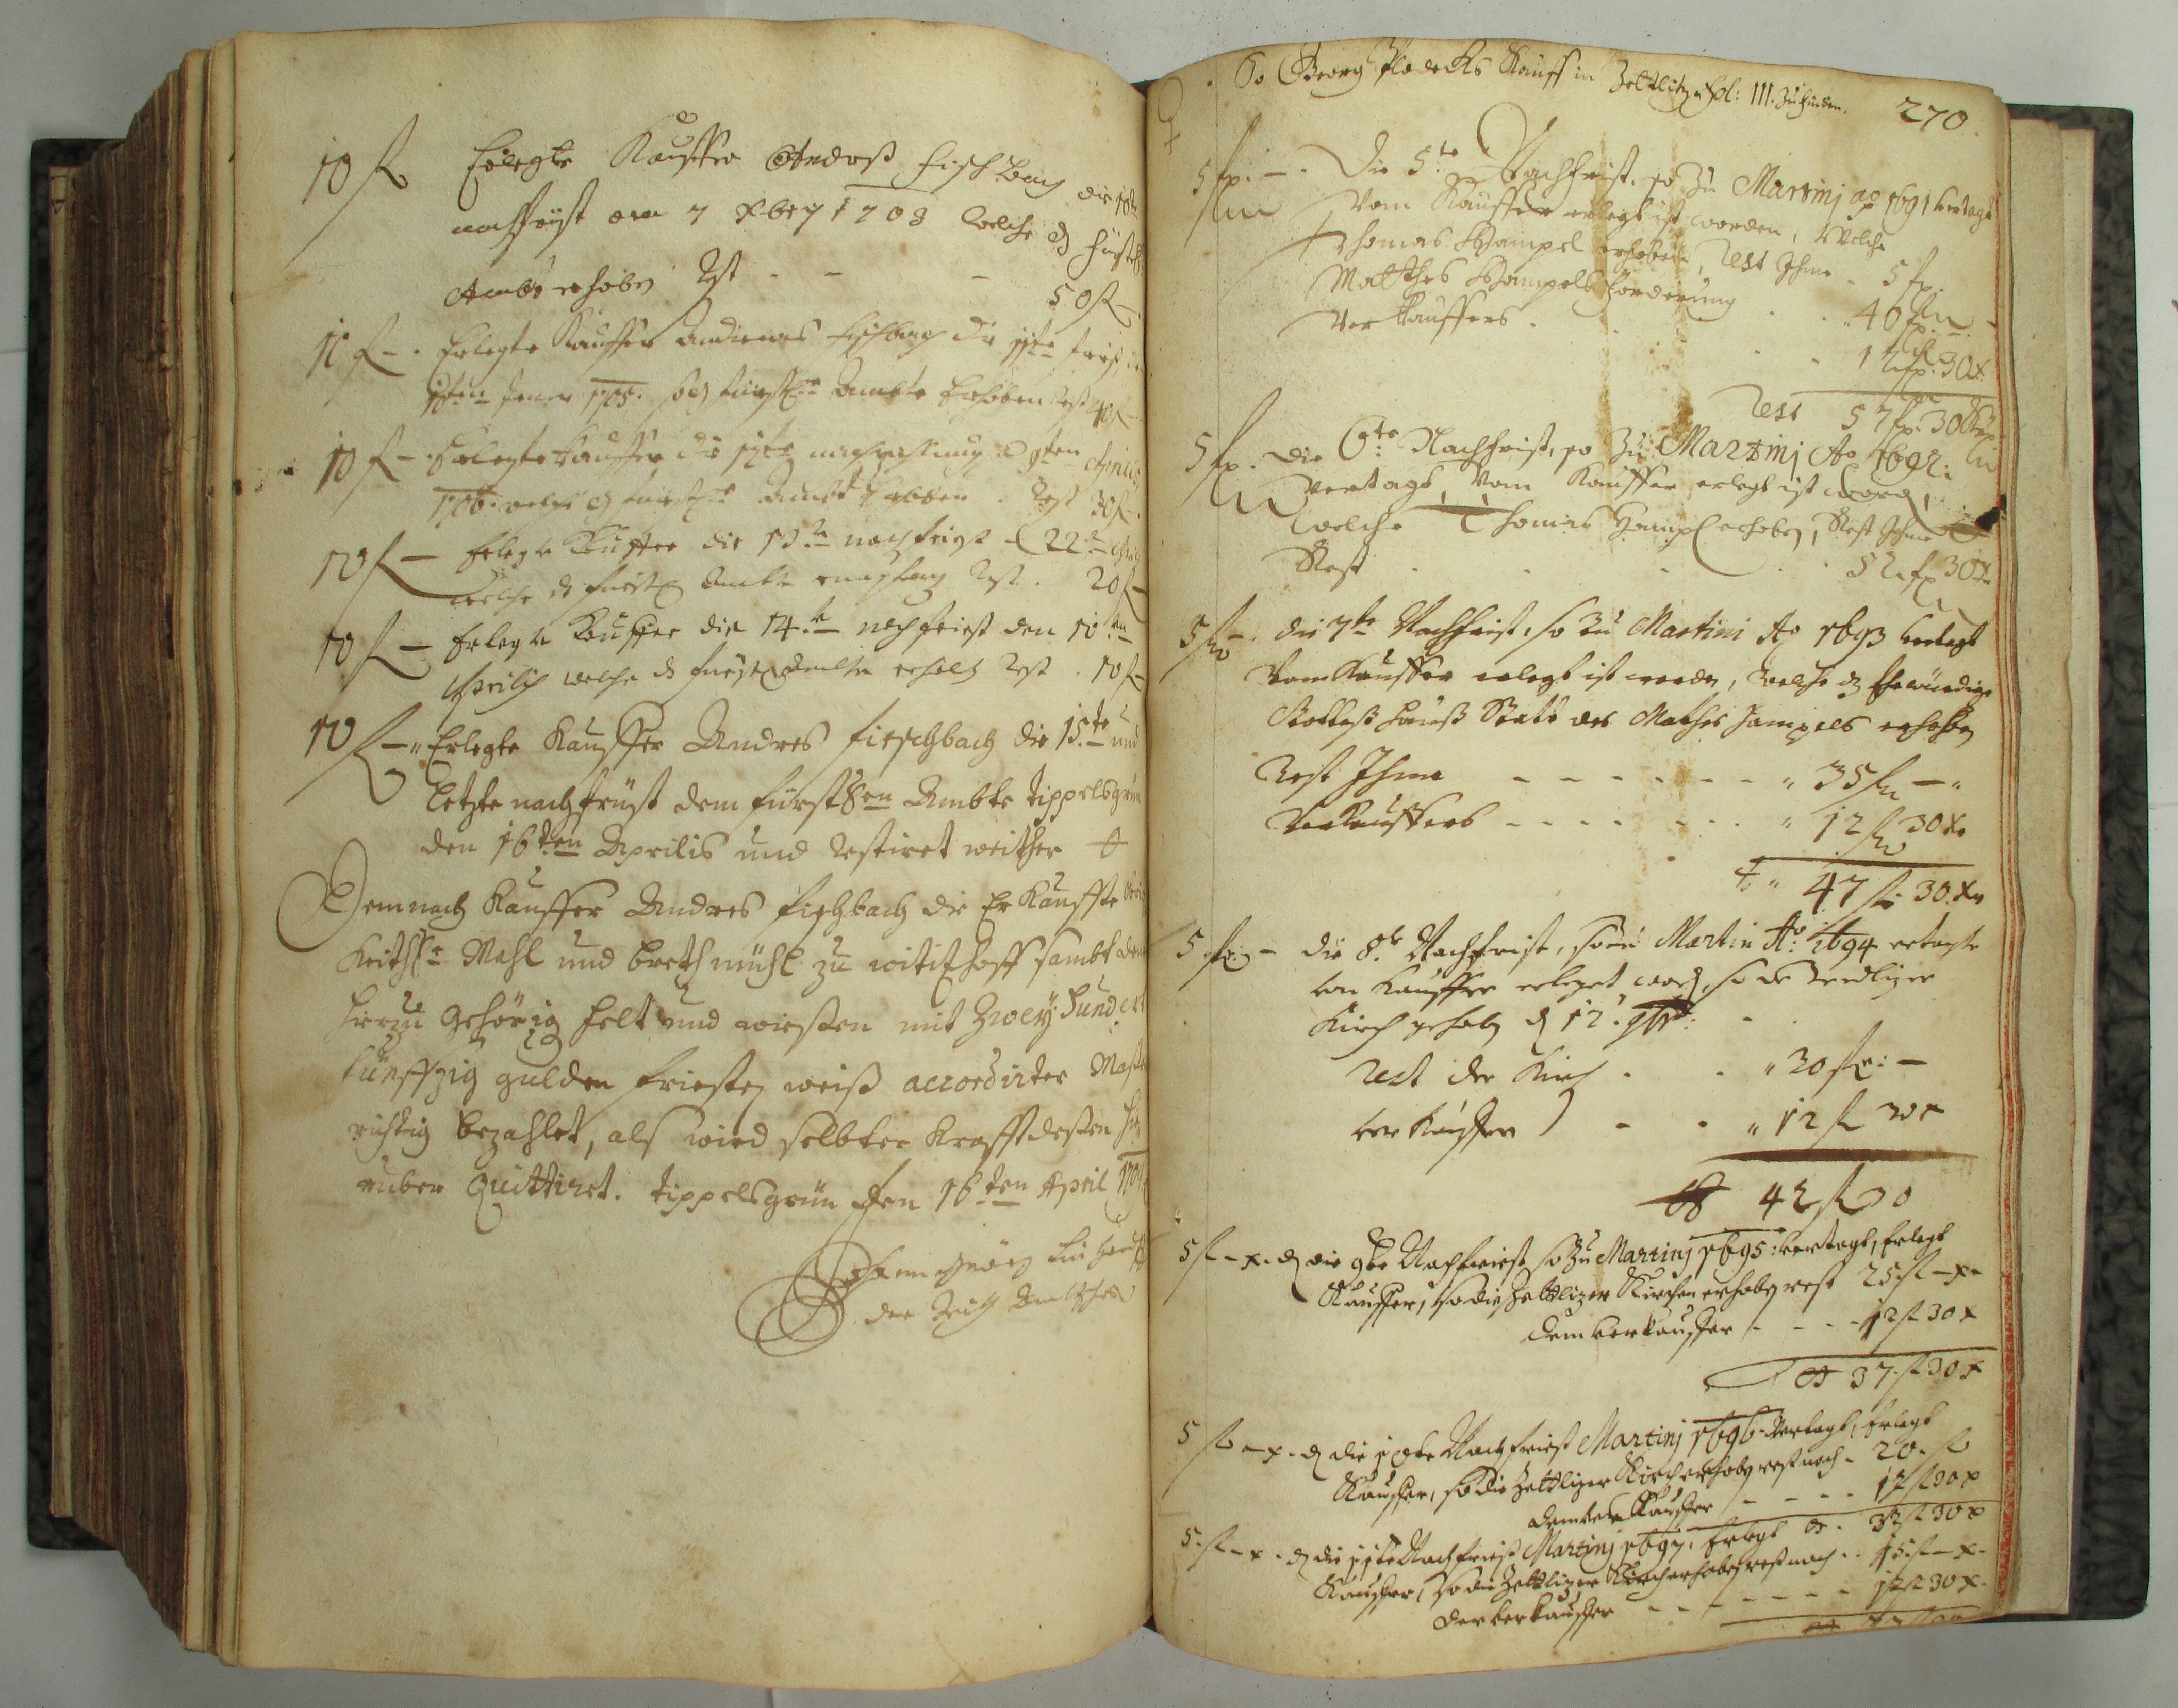 10 fl Erlegte Kauffer Andreß Fischbach die 10te
nachfrist am 7 Xber 1703 welche d fürstl
Ambt erhoben Rest - - - 50 fl
10 fl - Erlegte Kauffer Andreas Fischbach die 11te frist
1705. so d fürstl. Ambte Erhoben Rest 40 fl
10 fl - Erlegte Kauffer die 12te den 9ten Aprilis
1706. welche d fürstl. Ambt Erhoben. Rest 30 fl.
10 fl - Erlegte Kauffer die 13te nachfrist - 22te
welche d fürstl Ambte empfang Rest. 20 fl
10 fl - Erlegte Kauffer die 14te nachfrist den 10ten
Aprilis welche d fürstl Ambte erhobn Rest. 10 fl
10 fl - Erlegte Kauffer Andres fischbach die 15te und
letzte nachfrüst dem fürstlen Ambte tippelsgrün
den 16ten Aprilis und restiret weither
Demnach Kauffer Andres fischbach die Er Kauffte
Mahl und breth mühl zu witizhoff sambt dem
hierzu Gehörig felt und wiesen mit Zwey Hundert
fünffzig gulden friesten weiß accordirter Maßen
richtig bezahlet, als wird selbter Krafft deßen hi
rüber Quittiret. tippelsgrün den 16ten April
270.
So Georg Plodeks Kauff in Zettlitz Fol: 111. zu finden.
5 fl. - Die 5te Nachfrist, so zu Martinj ao 1691 vertagt
Vom Kauffer erlegt ist worden, Welche
Thomas Hampel erhoben, Rest Ihme - 5 fl.
Matthes Hampels forderung . . 40 fl -
Verkauffers . . - 12 fl. 30 x.
Rest 57 fl. 30 x
5 fl. Die 6te Nachfrist, so Zu Martinj Ao 1692.
vertagt, Vom Kauffer erlegt ist word,
welche Thomas Hampl erhoben, Rest Ihme
Rest . . . . 52 fl 30 x
5 fl - die 7te Nachfrist, so Zu Martini Ao 1693 vertagt
Vom Kauffer erlegt ist worden, welche d Ehrwürdige
Gottesß Hauß Statt des Mathes Hampels erhoben
Rest Ihme - - - - - - - " 35 fl - "
Verkauffers - - - - - - - " 12 fl 30 x
" 47 fl 30. x
5 fl. - die 8te Nachfrist, so zu Martin Ao 1694 vertagte
von Kauffer erleget word, so de Zedlizer
Kirch gehobn d 12. 9br.
Rest der Kirch . . " 30 fl: -
Verkauffer - . " 12 fl 30 x
42 fl 30
5 fl - x. d die 9te Nachfrist so Zu Martinj 1695: vertagt, Erlegt
Kauffer, so die Zettlizer Kirchen erhoben rest 25 fl - x.
dem verkauffer - - - 12 fl 30 x
37. fl 30 x
5 fl - x. d die 10te Nachfrist Martinj 1696 vertagt, Erlegt
Kauffer, so die Zettlizer Kirch erhoben rest noch - 20. fl
dem verKauffer - - - 12 fl 30 x
5. fl - x. d die 11te Nachfrist Martinj 1697. Erlegt 32 fl 30 x
Kauffer, so die Zettlizer Kirch erhoben rest noch .. 15. fl - x.
der verkauffer - - - - - - 12 fl 30 x.